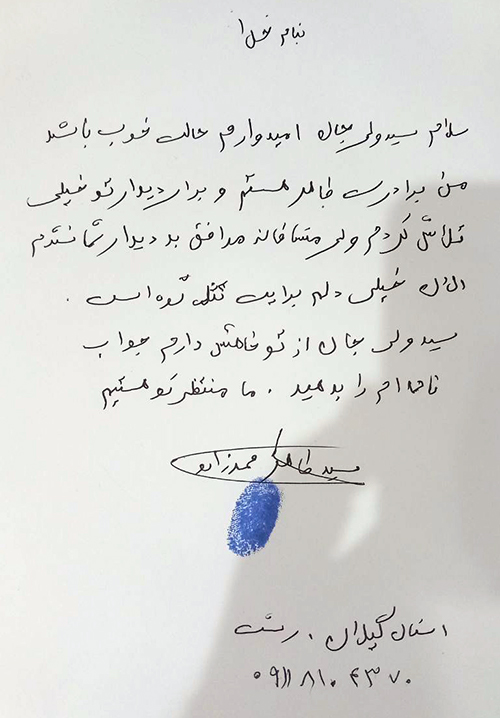 بنام خدا
سلام سیدولی جان امیدوارم حالت خوب باشد
من برادرت طاهر هستم و برای دیدار تو خیلی
تلاش کردم ولی متاسفانه موافق به دیدار شما نشدم
الان خیلی دلم برایت تنگ شده است .
سیدولی جان از تو خاهش دارم جواب
نامه ام را بدهید . ما منتظر تو هستیم
سید طاهر
استان گیلان . رشت